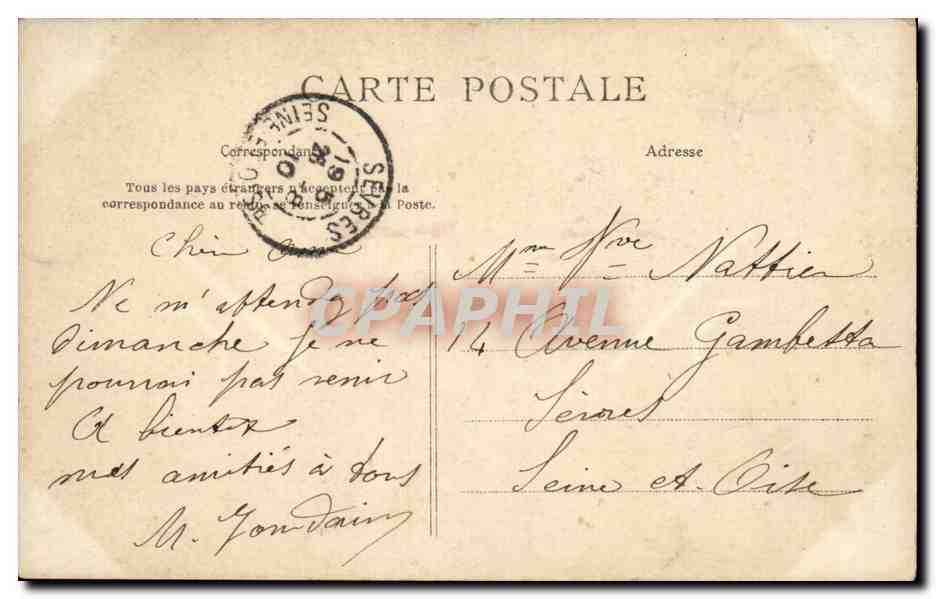 CARTE POSTALE
Correspondance
Adresse
Tous les pays étrangers n'acceptent pas la
correspondance au recto, se renseigner à la Poste.
SEVRES
SEINE-ET-OISE
19 5
28 8
10
Cher ami
Ne m'attendez pas
Dimanche je ne
pourrai pas venir
A bientot
mes amitiés à tous
M. Jourdain
Mme Vve Nattier
14 Avenue Gambetta
Sèvres
Seine et Oise
CPAPHIL